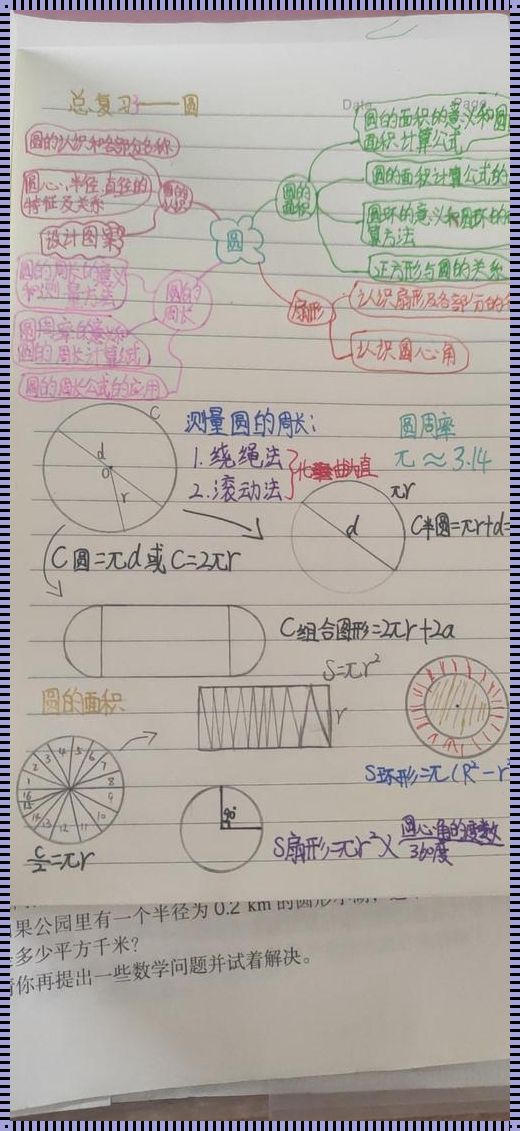 总复习——圆
圆的认识和各部分名称
圆心、半径、直径的
特征及关系
设计图案
圆的
认识
圆
圆的周长的意义
和测量方法
圆周率的意义和
圆的周长计算公式
圆的周长公式的应用
圆的
周长
圆的
面积
圆的面积的意义和圆
面积计算公式
圆的面积计算公式的
圆环的意义和圆环的
算方法
正方形与圆的关系
扇形
认识扇形及各部分的
认识圆心角
C
d
O
r
测量圆的周长:
1.绕绳法
2.滚动法
化曲为直
圆周率
π≈3.14
πr
d
C半圆=πr+d=
C圆=πd或C=2πr
C组合图形=2πr+2a
圆的面积
S=πr²
r
S环形=π(R²-r²
1 2 3 4 5 6 7 8 9 10 11 12 13 14 15 16
C/2=πr
90°
S扇形=πr²×圆心角的度数/360度
果公园里有一个半径为 0.2 km 的圆形小湖,这
多少平方千米?
你再提出一些数学问题并试着解决。